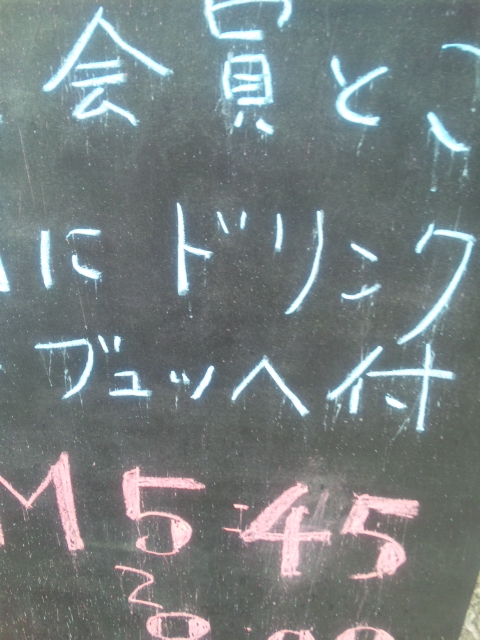 会員と
に ドリンク
ブュッヘ付
M 5:45